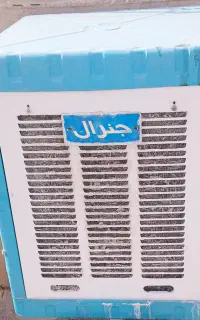 جنرال